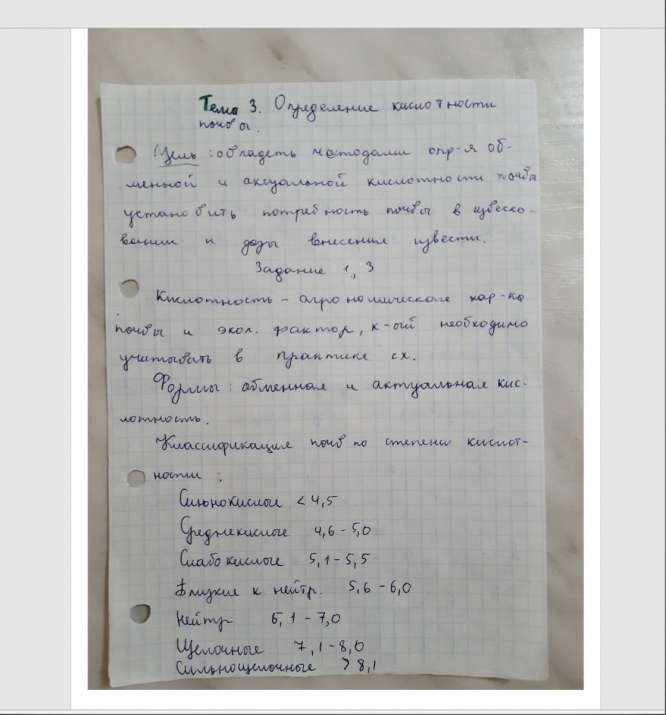 Тема 3. Определение кислотности
почвы.
Цель: овладеть методами опр-я об-
менной и актуальной кислотности почвы
установить потребность почвы в известко-
вании и дозы внесения извести.
Задание 1, 3
Кислотность - агрономическая хар-ка
почвы и экол. фактор, к-ый необходимо
учитывать в практике сх.
Формы: обменная и актуальная кис-
лотность.
Классификация почв по степени кислот-
ности:
Сильнокислые < 4,5
Среднекислые 4,6 - 5,0
Слабокислые 5,1 - 5,5
Близкие к нейтр. 5,6 - 6,0
Нейтр 6,1 - 7,0
Щелочные 7,1 - 8,0
Сильнощелочные > 8,1